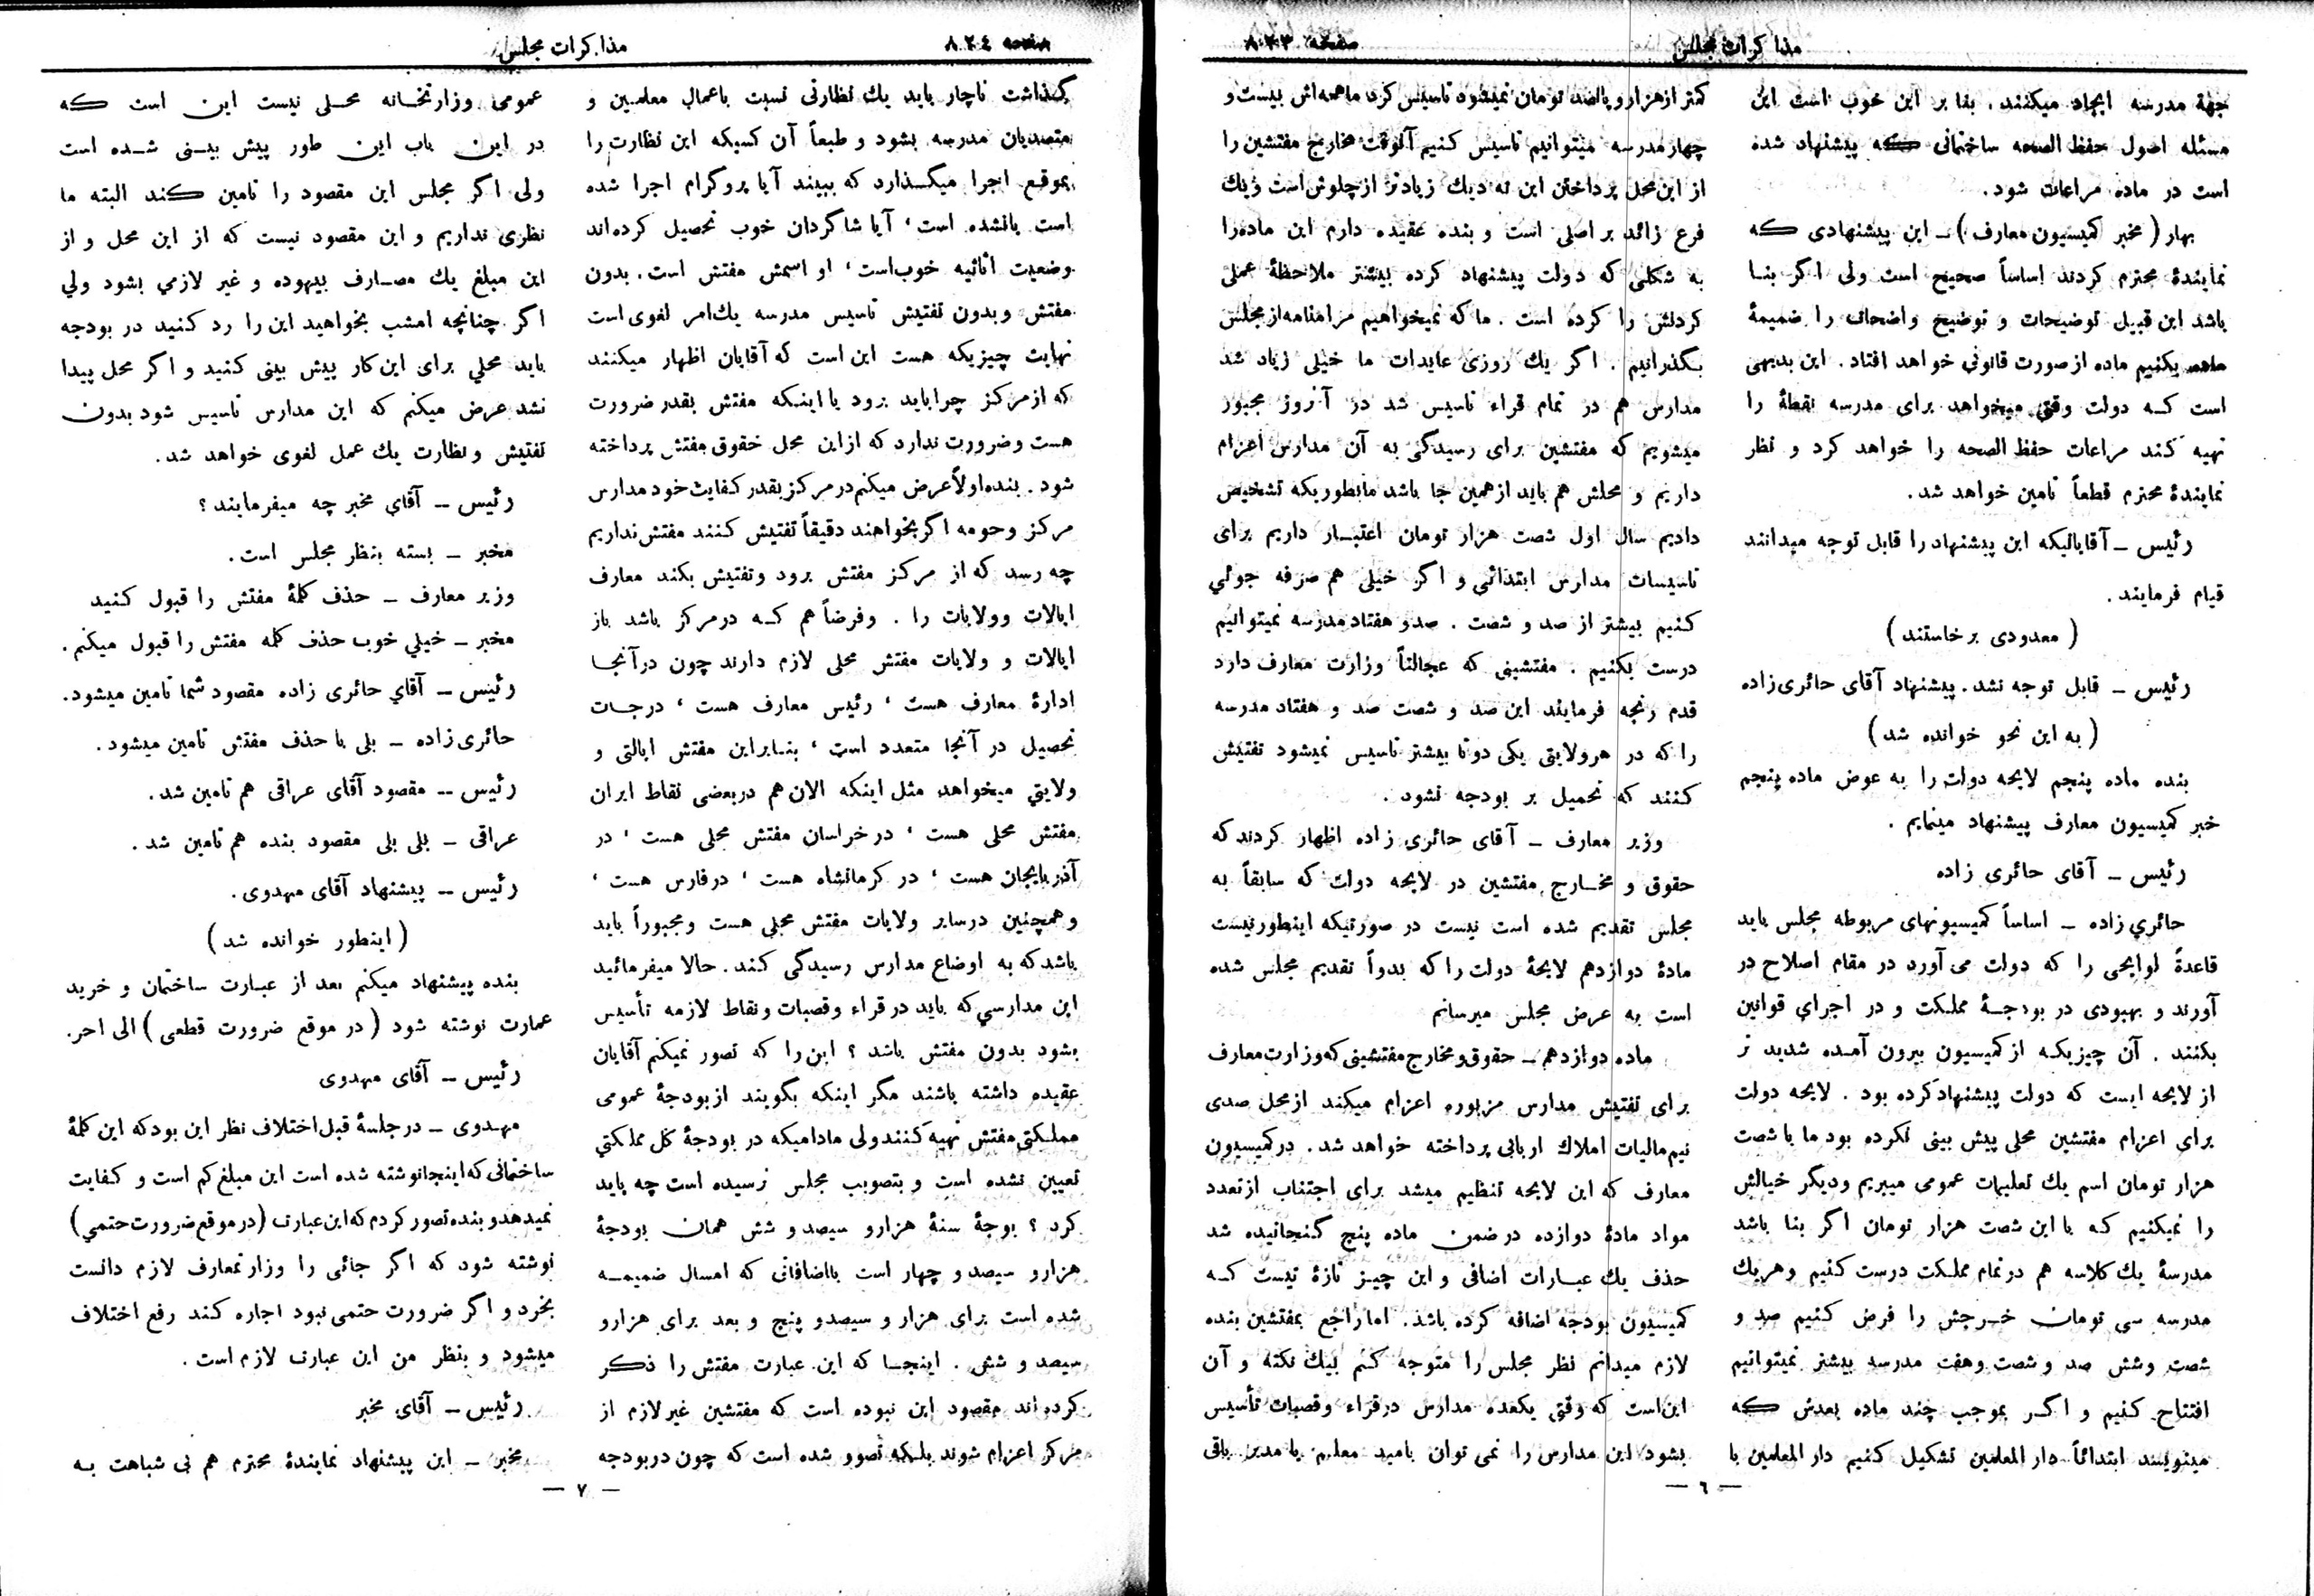 مذاکرات مجلس
صفحه ۸۲۳
جهة مدرسه ایجاد میکنند . بنا بر این خوب است این
مسئله اصول حفظ الصحه ساختمانی که پیشنهاد شده
است در ماده مراعات شود .
بهار ( مخبر کمیسیون معارف ) ــ این پیشنهادی که
نمایندهٔ محترم کردند اساساً صحیح است ولی اگر بنا
باشد این قبیل توضیحات و توضیح واضحات را ضمیمهٔ
ماده بکنیم ماده از صورت قانونی خواهد افتاد . این بدیهی
است که دولت وقتی میخواهد برای مدرسه نقطهٔ را
تهیه کند مراعات حفظ الصحه را خواهد کرد و نظر
نمایندهٔ محترم قطعاً تامین خواهد شد .
رئیس ــ آقایانیکه این پیشنهاد را قابل توجه میدانند
قیام فرمایند .
( معدودی برخاستند )
رئیس ــ قابل توجه نشد . پیشنهاد آقای حائری زاده
( به این نحو خوانده شد )
بنده ماده پنجم لایحه دولت را به عوض ماده پنجم
خبر کمیسیون معارف پیشنهاد مینمایم .
رئیس ــ آقای حائری زاده
حائري زاده ــ اساساً کمیسیونهای مربوطه مجلس باید
قاعدةً لوایحی را که دولت می آورد در مقام اصلاح در
آورند و بهبودی در بودجهٔ مملکت و در اجراي قوانین
بکنند . آن چیزیکه از کمیسیون بیرون آمده شدید تر
از لایحه ایست که دولت پیشنهاد کرده بود . لایحه دولت
برای اعزام مفتشین محلی پیش بینی نکرده بود ما با شصت
هزار تومان اسم یك تعلیمات عمومی میبریم و دیگر خیالش
را نمیکنیم که با این شصت هزار تومان اگر بنا باشد
مدرسهٔ یك کلاسه هم در تمام مملکت درست کنیم و هر یك
مدرسه سی تومان خرجش را فرض کنیم صد و
شصت و شش صد و شصت و هفت مدرسه بیشتر نمیتوانیم
افتتاح کنیم و اگر بموجب چند ماده بعدش که
مینویسد ابتدائاً دار المعلمین تشکیل کنیم دار المعلمین با
کمتر از هزار و پانصد تومان نمیشود تاسیس کرد ما همه اش بیست و
چهار مدرسه میتوانیم تاسیس کنیم آنوقت مخارج مفتشین را
از این محل پرداختن این ته دیك زیادتر از چلوش است و یك
فرع زائد بر اصلی است و بنده عقیده دارم این ماده را
به شکلی که دولت پیشنهاد کرده بیشتر ملاحظهٔ عملی
کردنش را کرده است . ما که نمیخواهیم مرامنامه از مجلس
بگذرانیم . اگر یك روزی عایدات ما خیلی زیاد شد
مدارس هم در تمام قراء تاسیس شد در آنروز مجبور
میشویم که مفتشین برای رسیدگی به آن مدارس اعزام
داریم و محلش هم باید از همین جا باشد ما بطوریکه تشخیص
دادیم سال اول شصت هزار تومان اعتبار داریم برای
تاسیسات مدارس ابتدائی و اگر خیلی هم صرفه جوئي
کنیم بیشتر از صد و شصت . صد و هفتاد مدرسه نمیتوانیم
درست بکنیم . مفتشینی که عجالتاً وزارت معارف دارد
قدم رنجه فرمایند این صد و شصت صد و هفتاد مدرسه
را که در هر ولایتی یکی دو تا بیشتر تاسیس نمیشود تفتیش
کنند که تحمیل بر بودجه نشود .
وزیر معارف ــ آقای حائری زاده اظهار کردند که
حقوق و مخارج مفتشین در لایحه دولت که سابقاً به
مجلس تقدیم شده است نیست در صورتیکه اینطور نیست
مادهٔ دوازدهم لایحهٔ دولت را که بدواً تقدیم مجلس شده
است به عرض مجلس میرسانم
ماده دوازدهم ــ حقوق و مخارج مفتشینی که وزارت معارف
برای تفتیش مدارس مزبوره اعزام میکند از محل صدی
نیم مالیات املاك اربابی پرداخته خواهد شد . در کمیسیون
معارف که این لایحه تنظیم میشد برای اجتناب از تعدد
مواد مادهٔ دوازده در ضمن ماده پنج گنجانیده شد
حذف یك عبارات اضافی و این چیز تازهٔ نیست که
کمیسیون بودجه اضافه کرده باشد . اما راجع بمفتشین بنده
لازم میدانم نظر مجلس را متوجه کنم بیك نکته و آن
این است که وقتی یکعده مدارس در قراء و قصبات تأسیس
بشود این مدارس را نمی توان بامید معلم یا مدیر باقی
— ٦ —
صفحه ۸۲٤
مذاکرات مجلس
گذاشت ناچار باید یك نظارتی نسبت باعمال معلمین و
متصدیان مدرسه بشود و طبعاً آن کسیکه این نظارت را
بموقع اجرا میگذارد که ببیند آیا پروگرام اجرا شده
است یا نشده است ، آیا شاگردان خوب تحصیل کرده اند
وضعیت اثاثیه خوب است ، او اسمش مفتش است . بدون
مفتش و بدون تفتیش تاسیس مدرسه یك امر لغوی است
نهایت چیزیکه هست این است که آقایان اظهار میکنند
که از مرکز چرا باید برود یا اینکه مفتش بقدر ضرورت
هست و ضرورت ندارد که از این محل حقوق مفتش پرداخته
شود . بنده اولاً عرض میکنم در مرکز بقدر کفایت خود مدارس
مرکز و حومه اگر بخواهند دقیقاً تفتیش کنند مفتش نداریم
چه رسد که از مرکز مفتش برود و تفتیش بکند معارف
ایالات و ولایات را . و فرضاً هم که در مرکز باشد باز
ایالات و ولایات مفتش محلی لازم دارند چون در آنجا
ادارهٔ معارف هست ، رئیس معارف هست ، درجات
تحصیل در آنجا متعدد است ، بنا براین مفتش ایالتی و
ولایتي میخواهد مثل اینکه الان هم در بعضی نقاط ایران
مفتش محلی هست ، در خراسان مفتش محلی هست ، در
آذربایجان هست ، در کرمانشاه هست ، در فارس هست ،
و همچنین در سایر ولایات مفتش محلی هست و مجبوراً باید
باشد که به اوضاع مدارس رسیدگی کند . حالا میفرمائید
این مدارسي که باید در قراء و قصبات و نقاط لازمه تأسیس
بشود بدون مفتش باشد ؟ این را که تصور نمیکنم آقایان
عقیده داشته باشند مگر اینکه بگویند از بودجهٔ عمومی
مملکتی مفتش تهیه کنند ولی مادامیکه در بودجهٔ کل مملکتي
تعیین نشده است و بتصویب مجلس نرسیده است چه باید
کرد ؟ بوجهٔ سنهٔ هزار و سیصد و شش همان بودجهٔ
هزار و سیصد و چهار است با اضافاتی که امسال ضمیمه
شده است برای هزار و سیصد و پنج و بعد برای هزار و
سیصد و شش . اینجا که این عبارت مفتش را ذکر
کرده اند مقصود این نبوده است که مفتشین غیر لازم از
مرکز اعزام شوند بلکه تصور شده است که چون در بودجه
عمومی وزارتخانه محلی نیست این است که
در این باب این طور پیش بینی شده است
ولی اگر مجلس این مقصود را تامین کند البته ما
نظری نداریم و این مقصود نیست که از این محل و از
این مبلغ یك مصارف بیهوده و غیر لازمي بشود ولي
اگر چنانچه امشب بخواهید این را رد کنید در بودجه
باید محلي برای این کار پیش بینی کنید و اگر محل پیدا
نشد عرض میکنم که این مدارس تاسیس شود بدون
تفتیش و نظارت یك عمل لغوی خواهد شد .
رئیس ــ آقاي مخبر چه میفرمایند ؟
مخبر ــ بسته بنظر مجلس است .
وزیر معارف ــ حذف کلمهٔ مفتش را قبول کنید
مخبر ــ خیلي خوب حذف کلمه مفتش را قبول میکنم .
رئیس ــ آقاي حائری زاده مقصود شما تامین میشود .
حائری زاده ــ بلی با حذف مفتش تامین میشود .
رئیس ــ مقصود آقای عراقی هم تامین شد .
عراقی ــ بلی بلی مقصود بنده هم تامین شد .
رئیس ــ پیشنهاد آقای مهدوی .
( اینطور خوانده شد )
بنده پیشنهاد میکنم بعد از عبارت ساختمان و خرید
عمارت نوشته شود ( در موقع ضرورت قطعی ) الی اخر .
رئیس ــ آقای مهدوی
مهدوی ــ در جلسهٔ قبل اختلاف نظر این بود که این کلمهٔ
ساختمانی که اینجا نوشته شده است این مبلغ کم است و کفایت
نمیدهد و بنده تصور کردم که این عبارت ( در موقع ضرورت حتمي )
نوشته شود که اگر جائی را وزارتمعارف لازم دانست
بخرد و اگر ضرورت حتمی نبود اجاره کند رفع اختلاف
میشود و بنظر من این عبارت لازم است .
رئیس ــ آقای مخبر
مخبر ــ این پیشنهاد نمایندهٔ محترم هم بی شباهت به
— ۷ —